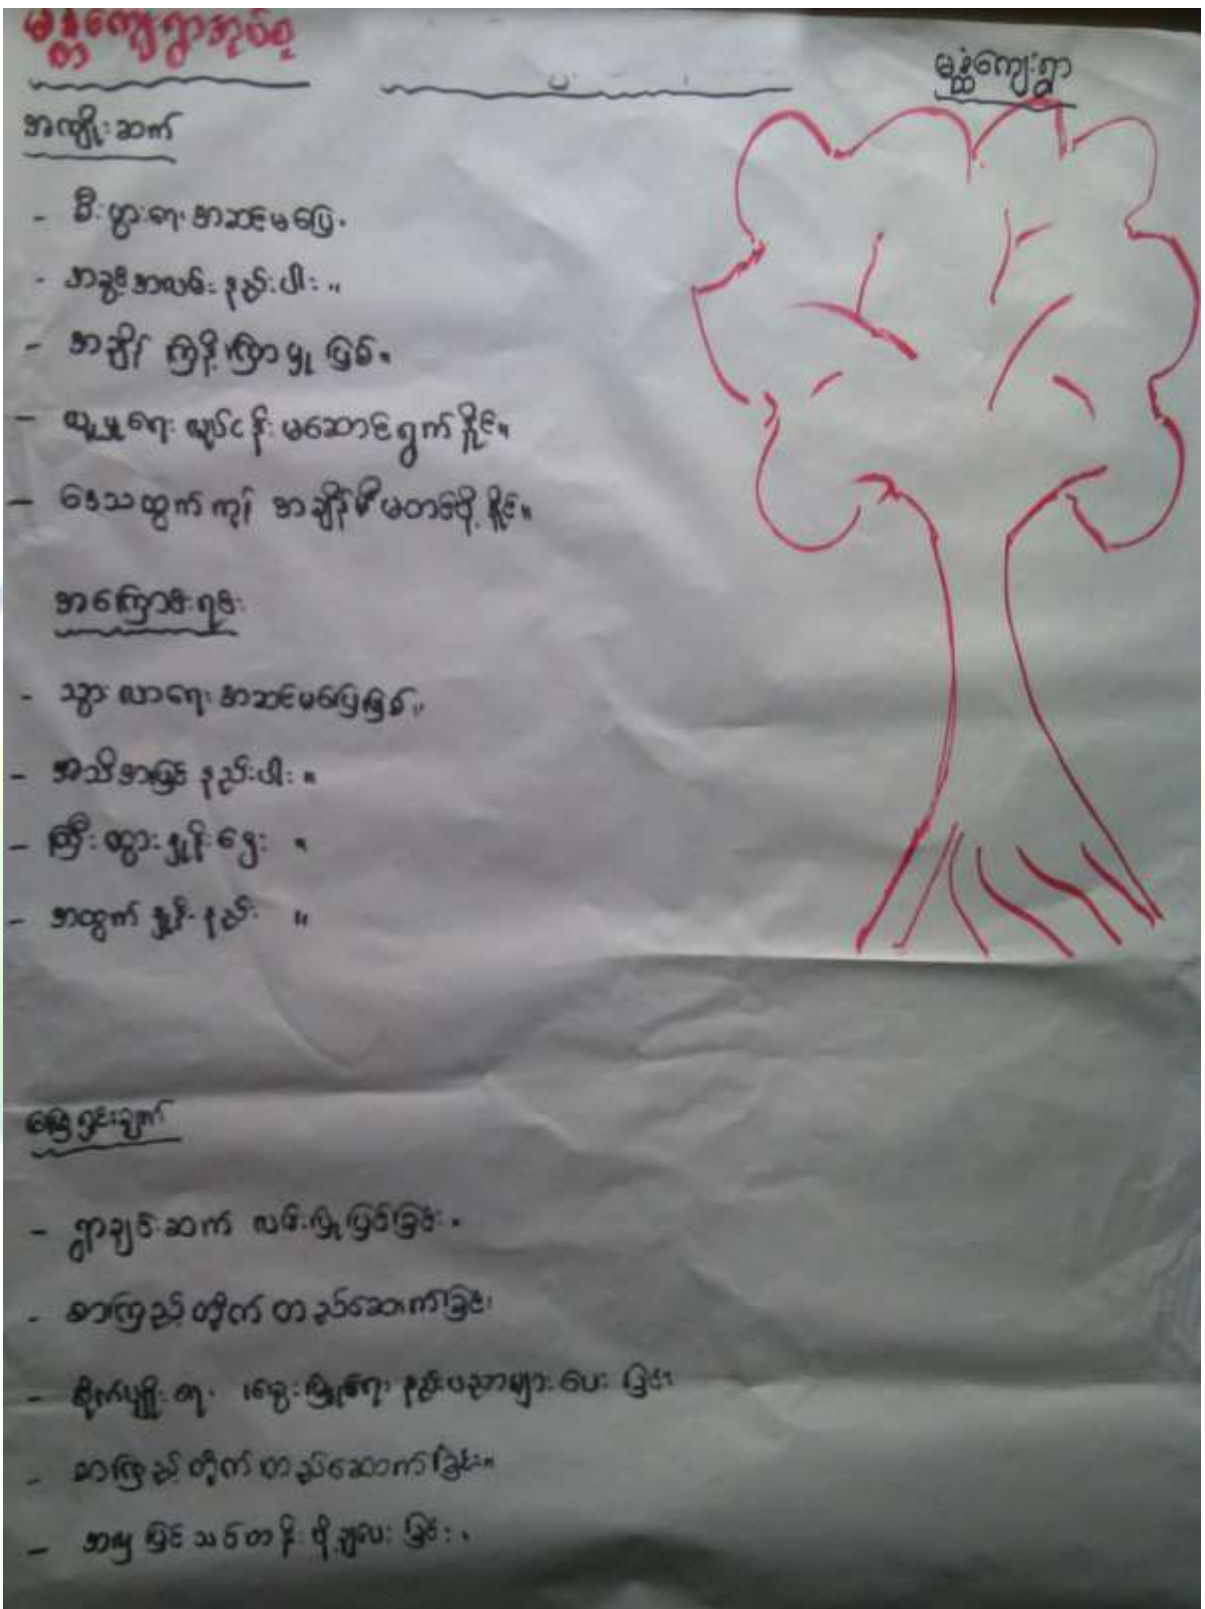 ကျေးရွာအုပ်စု
ကျေးရွာ
အကျိုးဆက်
- စီးပွားရေး အဆင်မပြေ။
- အခွင့်အလမ်း နည်းပါး။
- အချိန် ကြန့်ကြာမှု ဖြစ်။
- လူမှုရေး လုပ်ငန်း မဆောင်ရွက်နိုင်။
- ဒေသထွက်ကုန် အချိန်မီ မတင်ပို့နိုင်။
အကြောင်းရင်း
- သွားလာရေး အဆင်မပြေဖြစ်။
- အသိအမြင် နည်းပါး။
- ကြီးထွားနှုန်းနှေး "
- အထွက်နှုန်းနည်း "
ဖြေရှင်းချက်
- ရွာချင်းဆက် လမ်းပြုပြင်ခြင်း။
- စာကြည့်တိုက် တည်ဆောက်ခြင်း
- စိုက်ပျိုးရေး မွေးမြူရေး နည်းပညာများ ပေးခြင်း
- စာကြည့်တိုက် တည်ဆောက်ခြင်း။
- သင်တန်း ပို့ချပေးခြင်း။